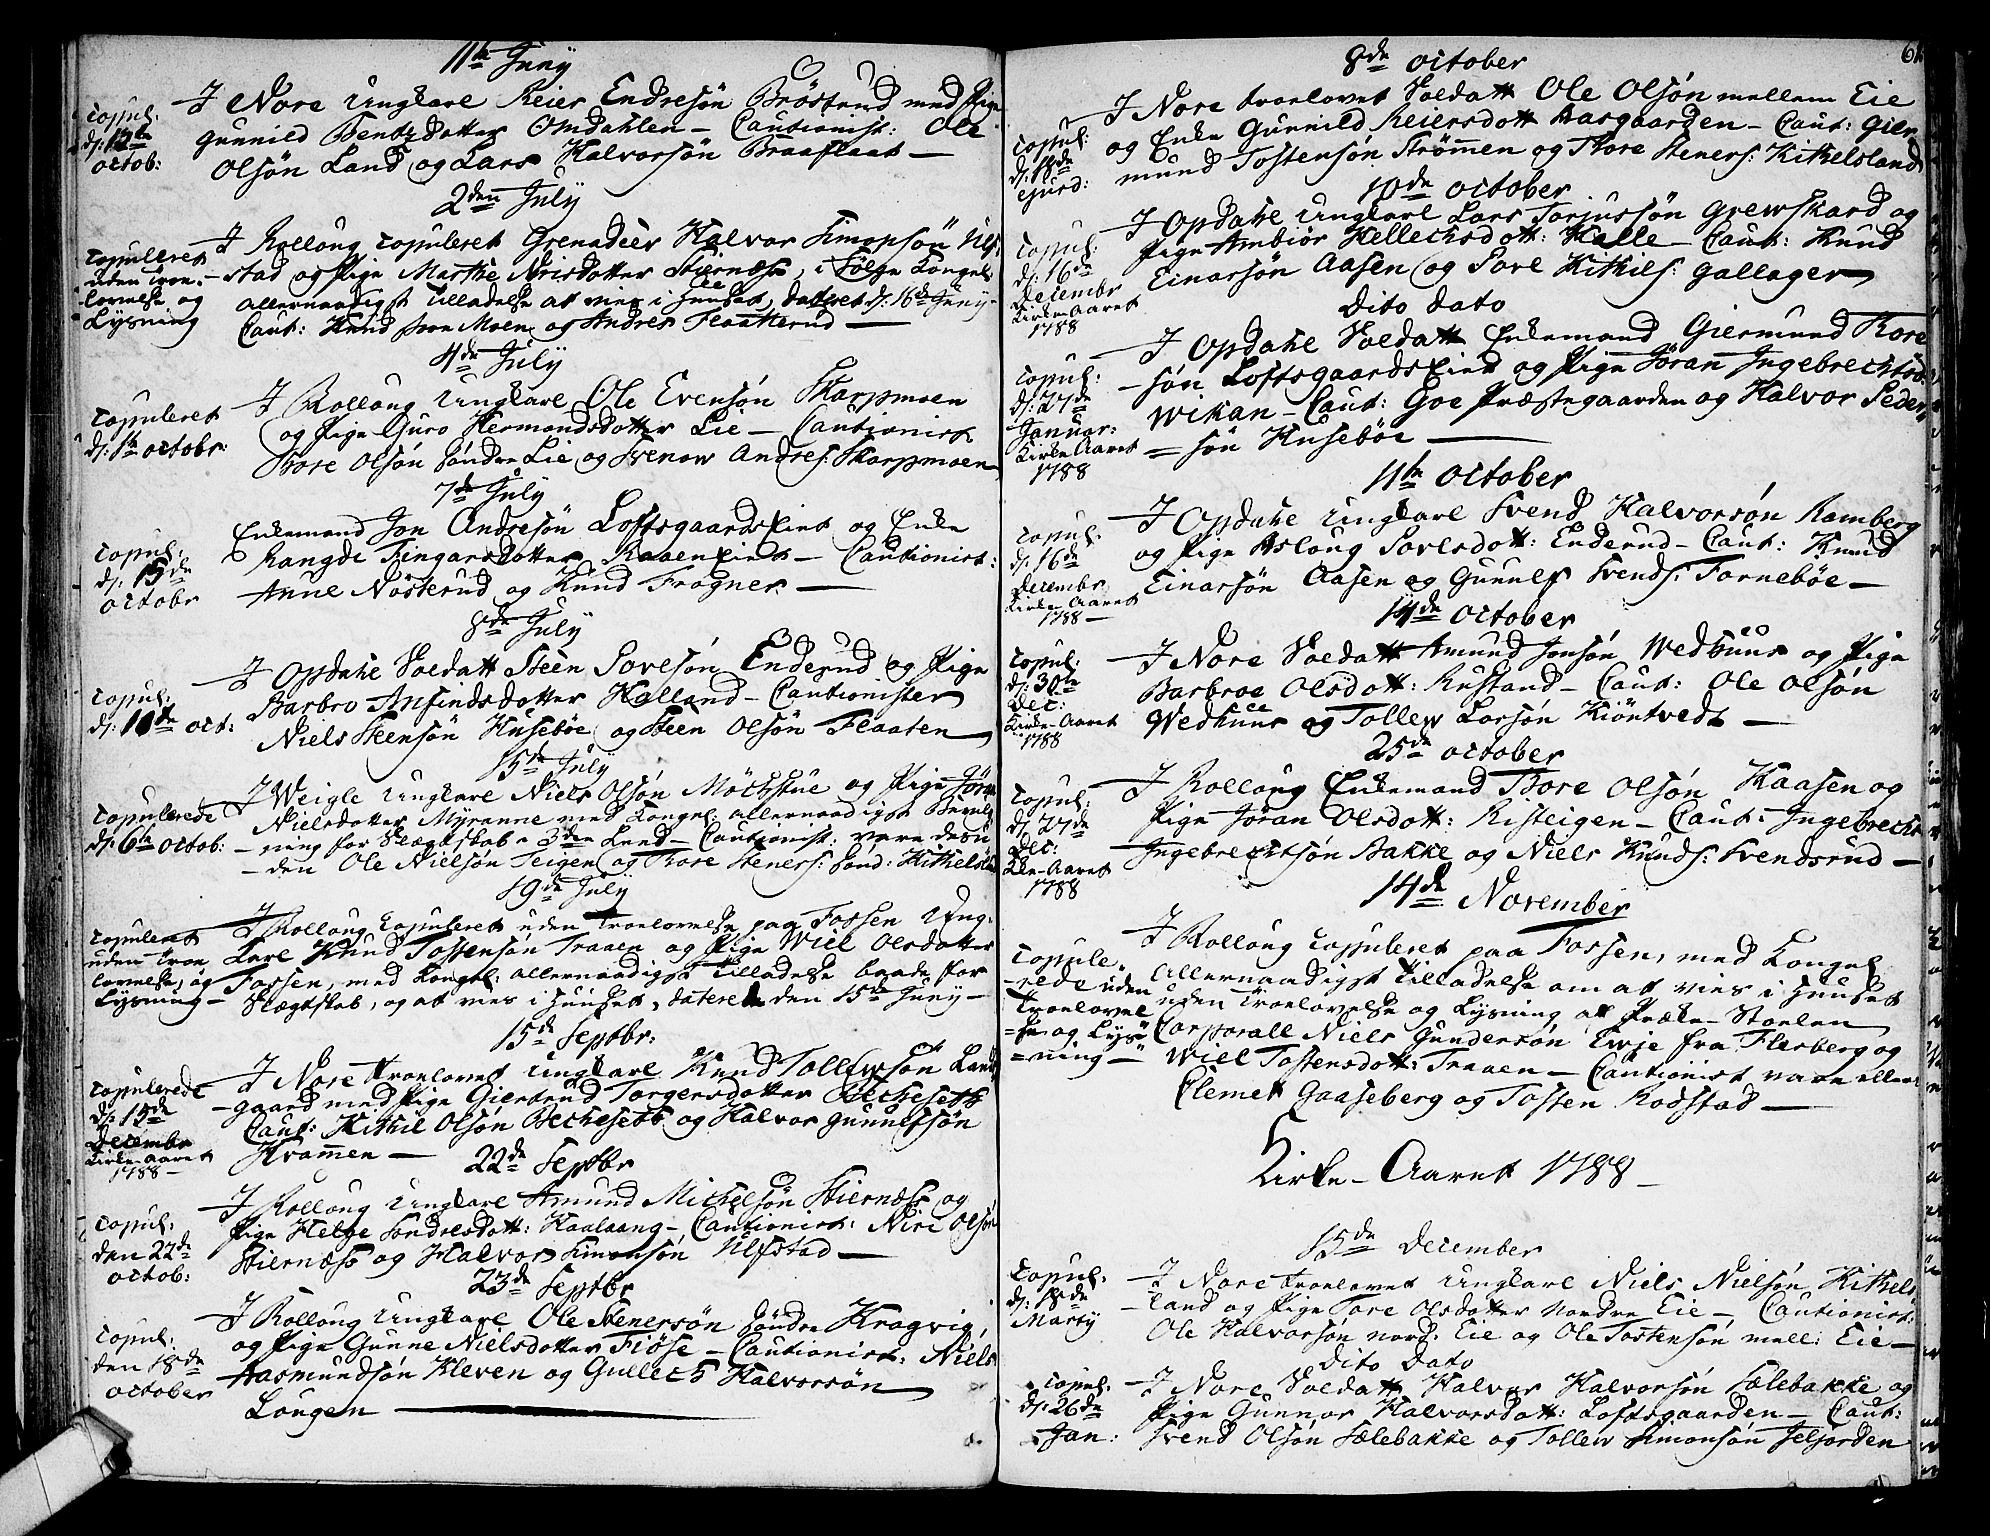 11te Juny
copul:
d: 12te
octob:
I Nore Ungkarl Reier Endresøn Brøstrud med Pige
Gunnild Bentzdotter Omdahlen – Cautionist: Ole
Olsøn Land og Lars Halvorsøn Braaflaat –
2den July
Copuleret
uden troe-
lovelse og
Lysning
I Rolloug copuleret Grenadeer Halvor Simonsøn Ulf-
stad og Pige Marthe Nirisdotter Stiernæss, i Følge Kongel:
allernaadigst Tilladelse at vies i Huuset, dateret d: 16de Juny
Caut: Knud Moen og Andres Flaatterud –
4de July
copuleret
d: 1te octobr:
I Rolloug Ungkarl Ole Evensøn Skarpmoen
og Pige Guro Hermandsdotter Lie – Cautionist:
Tore Olsøn søndre Lie og Svenow Andres: Skarpmoen
7de July
copul:
d: 15de
octobr
Enkemand Jon Andresøn Loftsgaardseiet og Enke
Rangdi Fingarsdotter Raaeneiet – Cautionist:
Aune Nøsterud og Knud Fragner –
8de July
copul:
d: 10de oct:
I Opdahl Soldatt Steen Torelsøn Enderud og Pige
Barbro Anfindsdotter Halland – Cautionister
Niels Steensøn Husebøe og Steen Olsøn Flaaten
15de July
copulerede
d: 6te octob:
I Weigle Ungkarl Niels Olsøn Møchstue og Pige Jøran
Nielsdotter Myranne med Kongel: allernaadigst Bevil-
ning for Slægtskab i 3die Leed – Cautionist: vare desu-
den Ole Nielsøn Teigen og Tore Steners: Sønd: Kithelsland
19de July
copuleret
uden troe
lovelse, og
Lysning –
I Rolloug copuleret uden troelovelse paa Fossen Ung-
karl Knud Tostensøn Traaen og Pige Wiel Olsdotter
Fossen, med Kongel: allernaadigst Tilladelse baade for
Slægtskab, og at vies i Huuset, dateret den 15de Juny –
15de Septbr:
copulerede
d: 15de
Decembr
Kirke-Aaret
1788 –
I Nore troelovet Ungkarl Knud Tollewsøn Land-
gaard med Pige Giertrud Torgersdotter Bechesett
Caut: Kithil Olsøn Bechesett og Halvor Gunulfsøn
Kramen –
22de Septbr
copul:
den 22de
octob:
I Rolloug Ungkarl Amund Michelsøn Stiernæss og
Pige Helge Sondresdott: Haalaang – Cautionist: Niri Olsøn
Stiernæss og Halvor Simonsøn Ulfstad –
23de Septbr
copul:
den 18de
october
I Rolloug Ungkarl Ole Stenersøn søndre Kragvig,
og Pige Gunne Nielsdotter Fiøse – Cautionist: Niels
Aasmundsøn Kleven og Gullech Halvorsøn
Lougen –
8de october
copul:
d: 18de
ejusd:
I Nore troelovet Soldatt Ole Olsøn mellem Eie
og Enke Gunnild Reiersdott Aasgaarden – Caut: Gier-
mund Tostensøn Strømen og Tore Steners: Kithelsland
10de october
copul:
d: 16de
Decembr
Kirke-Aaret
1788
I Opdahl Ungkarl Lars Torjussøn Grewskard og
Pige Ambiør Hellechsdott: Halle – Caut: Knud
Einarsøn Aasen og Tore Kithils: Gallager
Dito Dato
copul:
d: 27de
Januar:
Kirke-Aaret
1788
I Opdahl Soldatt Enkemand Giermund Tore
-søn Loftsgaardseiet og Pige Jøran Ingebrechtsd:
Wikan – Caut: Goe Præstegaarden og Halvor Peder-
= søn Husebøe –
11te october
copul:
d: 16de
Decembr
Kirke-Aaret
1788 –
I Opdahl Ungkarl Svend Halvorsøn Ramberg
og Pige Asloug Torelsdott: Enderud – Caut: Knud
Einarsøn Aasen og Gunulf Svends: Fornebøe –
14de october
copul:
d: 30te
Dec:
Kirke-Aaret
1788
I Nore Soldatt Amund Jonsøn Wedhuus og Pige
Barbroe Olsdott: Rustand – Caut: Ole Olsøn
Wedhuus og Tollew Larsøn Kiøntvedt –
25de october
copul:
d: 27de
Dec:
Kke-Aaret
1788
I Rolloug Enkemand Tore Olsøn Haasen og
Pige Jøran Olsdott: Risteigen – Caut: Ingebrecht
Ingebrechtsøn Bakke og Niels Knuds: Svendsrud –
14de November
Copule-
rede uden
Troelovel
=se og Lys-
=ning –
I Rolloug copuleret paa Fossen, med Kongel:
Allernaadigst Tilladelse om at vies i Huuset
uden Troelovelse og Lysning af Præke-Stoelen
Corporall Niels Gundersøn Ewje fra Flesberg og
Wiel Tostensdott: Traaen – Cautionist vare eller
Clemet Gaaseberg og Tosten Rodstad –
Kirke-Aaret 1788 –
15de December
copul:
d: 18de
Marty
I Nore troelovet Ungkarl Niels Nielsøn Kithels-
-land og Pige Tore Olsdotter Nordre Eie – Cautionist:
Ole Halvorsøn nord: Eie og Ole Tostensøn mell: Eie –
Dito Dato
copul:
d: 26de
Jan:
I Nore Soldatt Halvor Halvorsøn Sælebakke og
Pige Gunnor Halvorsdott: Loftsgaarden – Caut:
Svend Olsøn Sælebakke og Tollew Simonsøn Seljorden